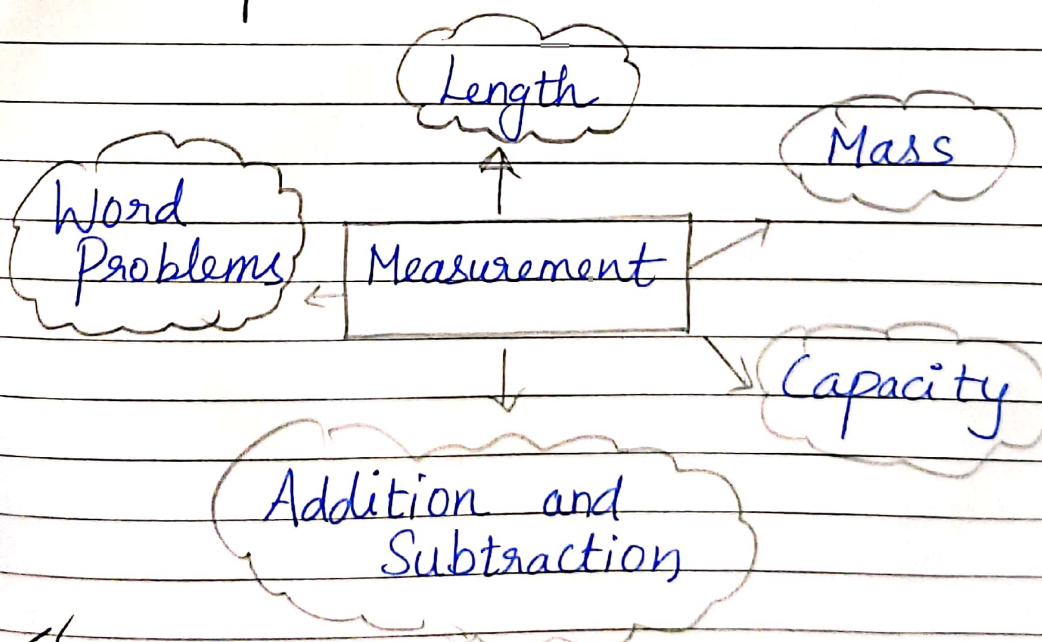 Length
Mass
Word
Problems
Measurement
Capacity
Addition and
Subtraction